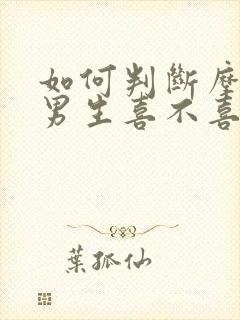 如何判斷
男生喜不喜
葉孤仙